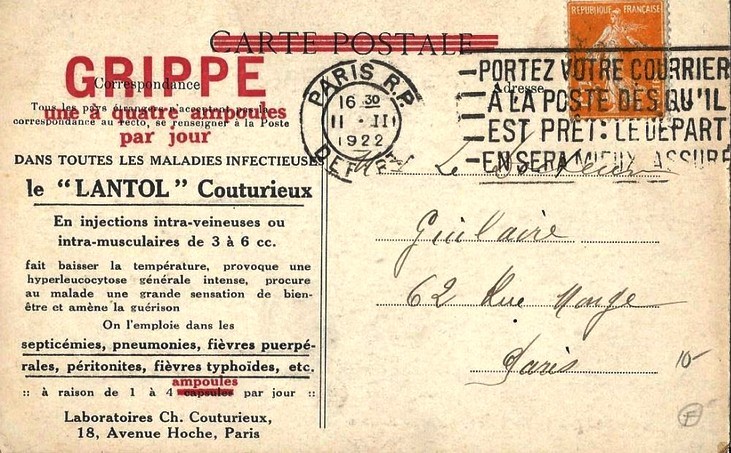 CARTE POSTALE
GRIPPE
Correspondance
Tous les pays étrangers n'acceptent pas la
une à quatre ampoules
correspondance au recto, se renseigner à la Poste
par jour
DANS TOUTES LES MALADIES INFECTIEUSES
le "LANTOL" Couturieux
En injections intra-veineuses ou
intra-musculaires de 3 à 6 cc.
fait baisser la température, provoque une
hyperleucocytose générale intense, procure
au malade une grande sensation de bien-
être et amène la guérison
On l'emploie dans les
septicémies, pneumonies, fièvres puerpé-
rales, péritonites, fièvres typhoïdes, etc.
ampoules
:: à raison de 1 à 4 capsules par jour ::
Laboratoires Ch. Couturieux,
18, Avenue Hoche, Paris
REPUBLIQUE FRANÇAISE
PARIS R.P.
16 30
11 - II
1922
DEPART
Adresse
PORTEZ VOTRE COURRIER
A LA POSTE DES QU'IL
EST PRÊT: LE DEPART
EN SERA MIEUX ASSURÉ
Le Docteur
Guilaire
62 Rue Monge
Paris
10-
F